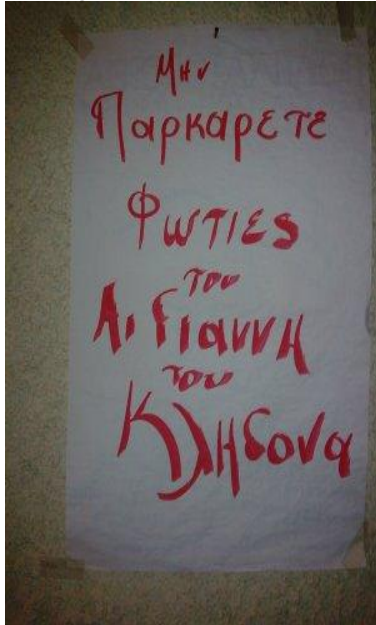 Μην
Παρκαρετε
Φωτιες
του
Αι Γιαννη
του
Κληδονα